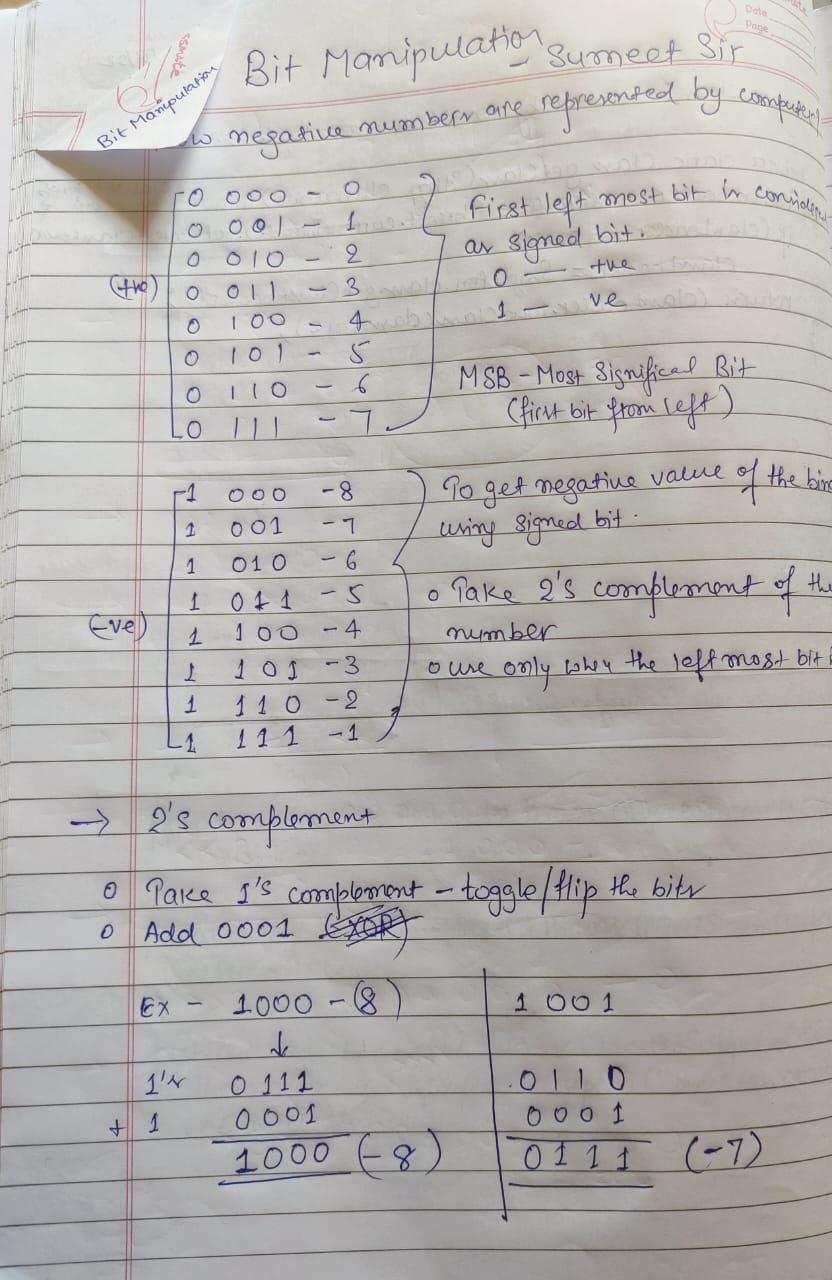 Bit Manipulation - Sumeet Sir
Date
Page
Bit Manipulation
negative numbers are represented by computers
0 000 - 0
0 001 - 1
0 010 - 2
0 011 - 3
0 100 - 4
0 101 - 5
0 110 - 6
0 111 - 7
(+ve)
First left most bit is
as signed bit.
0 — +ve
1 — ve
MSB - Most Significal Bit
(first bit from left)
1 000 -8
1 001 -7
1 010 -6
1 011 -5
1 100 -4
1 101 -3
1 110 -2
1 111 -1
(-ve)
To get negative value of the
using signed bit.
o Take 2's complement of the
number
o use only when the left most bit
→ 2's complement
o Take 1's complement - toggle/flip the bits
o Add 0001 (XOR)
Ex - 1000 - (8)
↓
1's 0111
+ 1 0001
1000 (-8)
1 001
0110
0001
0111 (-7)